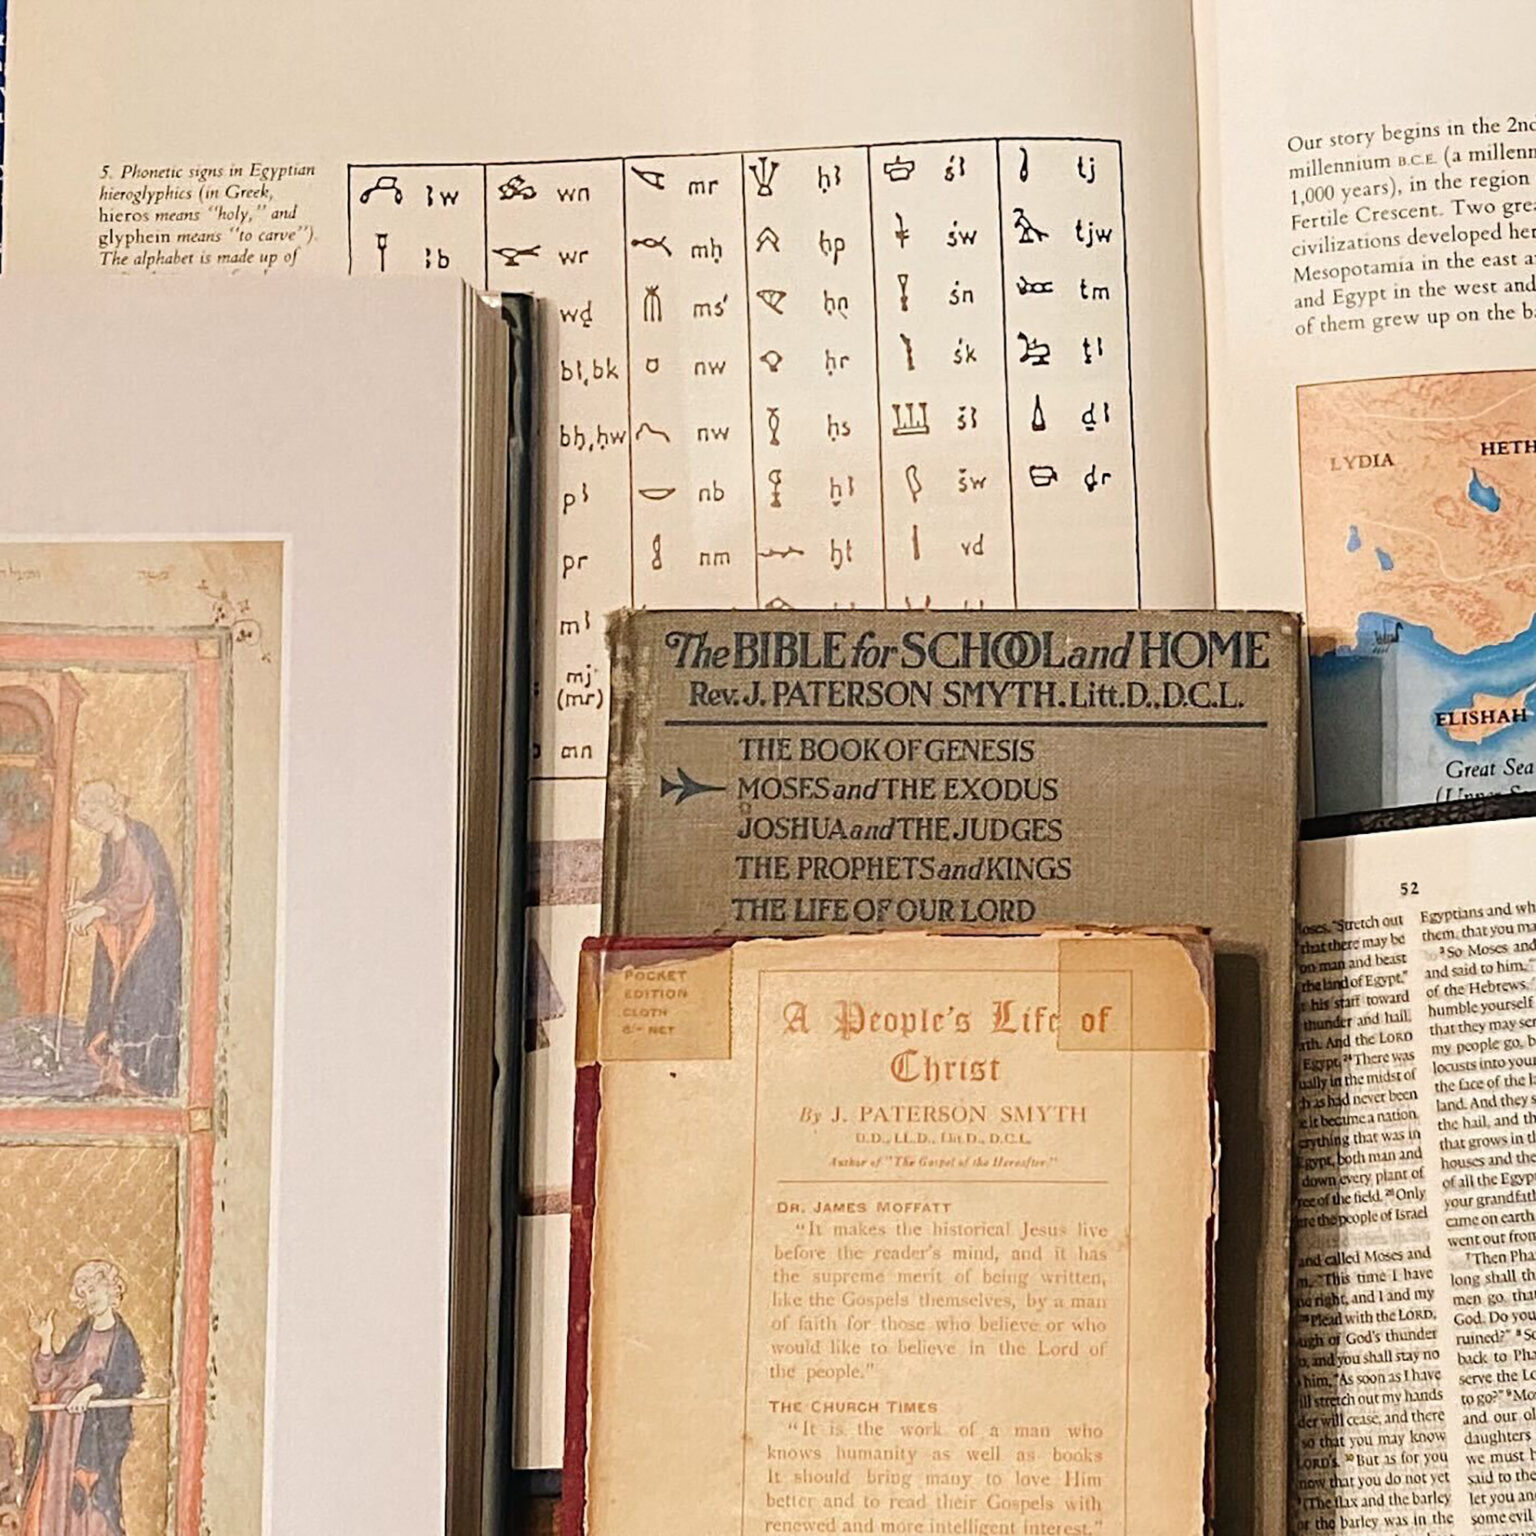 5. Phonetic signs in Egyptian
hieroglyphics (in Greek,
hieros means "holy," and
glyphein means "to carve").
The alphabet is made up of
wn
mr
ḥꜣ
tj
wr
mḥ
ḥp
św
tjw
wḏ
mś
śn
tm
nw
ḥr
śk
nw
ḥs
pꜣ
nb
šw
ḏr
pr
nm
mꜣ
mj
(mr)
mn
Our story begins in the 2nd
millennium B.C.E. (a millenn
1,000 years), in the region
Fertile Crescent. Two grea
civilizations developed her
Mesopotamia in the east a
and Egypt in the west and
of them grew up on the ba
LYDIA
HETH
ELISHAH
Great Sea
The BIBLE for SCHOOL and HOME
Rev. J. PATERSON SMYTH. Litt.D., D.C.L.
THE BOOK OF GENESIS
MOSES and THE EXODUS
JOSHUA and THE JUDGES
THE PROPHETS and KINGS
THE LIFE OF OUR LORD
POCKET
EDITION
CLOTH
NET
A People's Life of
Christ
By J. PATERSON SMYTH
D.D., LL.D., Litt.D., D.C.L.
Author of "The Gospel of the Hereafter."
DR. JAMES MOFFATT
"It makes the historical Jesus live
before the reader's mind, and it has
the supreme merit of being written,
like the Gospels themselves, by a man
of faith for those who believe or who
would like to believe in the Lord of
the people."
THE CHURCH TIMES
"It is the work of a man who
knows humanity as well as books
It should bring many to love Him
better and to read their Gospels with
renewed and more intelligent interest."
52
"Stretch out
that there may be
on man and beast
the land of Egypt."
his staff toward
thunder and hail,
And the LORD
Egypt, 24 There was
in the midst of
as had never been
it became a nation.
that was in
Egypt, both man and
down every plant of
of the field. 26 Only
the people of Israel
and called Moses and
"This time I have
right, and I and my
28 Plead with the LORD,
of God's thunder
and you shall stay no
him, "As soon as I have
stretch out my hands
will cease, and there
so that you may know
LORD'S. 30 But as for you
that you do not yet
(The flax and the barley
the barley was in the
Egyptians and wh
them, that you ma
3 So Moses and
and said to him, "
of the Hebrews, '
humble yourself
that they may ser
my people go, b
locusts into your
the face of the la
land. And they s
the hail, and th
that grows in th
houses and the
of all the Egyp
your grandfath
came on earth
went out from
7 Then Pha
long shall th
men go, that
God. Do you
ruined?" 8 So
back to Pha
serve the Lo
to go?" 9 Mo
and our ol
daughters
we must h
said to the
let you an
some evil